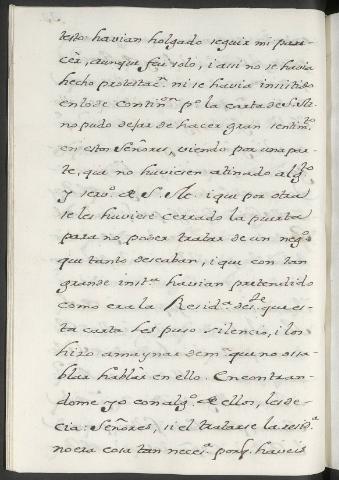 testo havian holgado seguir mi pare-
cèr, aunque feu solo, i assi no se havia
hecho protestac.ⁿ ni se havia insistido
en lo de contin.ᵒⁿ p.ᵒ la carta de S. M.
no pudo dejar de hacer gran sentim.ᵗᵒ
en estos Señores, viendo por una par-
te, que no huviesen atinado al g.ᵗᵒ
y serv.ᵒ de S. M. i que por otra
se les huviese cerrado la puerta
para no poder tratar de un neg.ᵒ
que tanto deseaban, i que con tan
grande inst.ᵃ havian pretendido
como era la Resid.ᵃ de que es-
ta carta les puso silencio, i los
hizo amaynar de m.ᵃ que no osa-
blar hablàr en ello. Encontran-
dome yo con alg.ˢ de ellos, les de-
cia: Señores, si el tratarse la resid.ᵃ
no era cosa tan neces.ᵃ porq. haveis